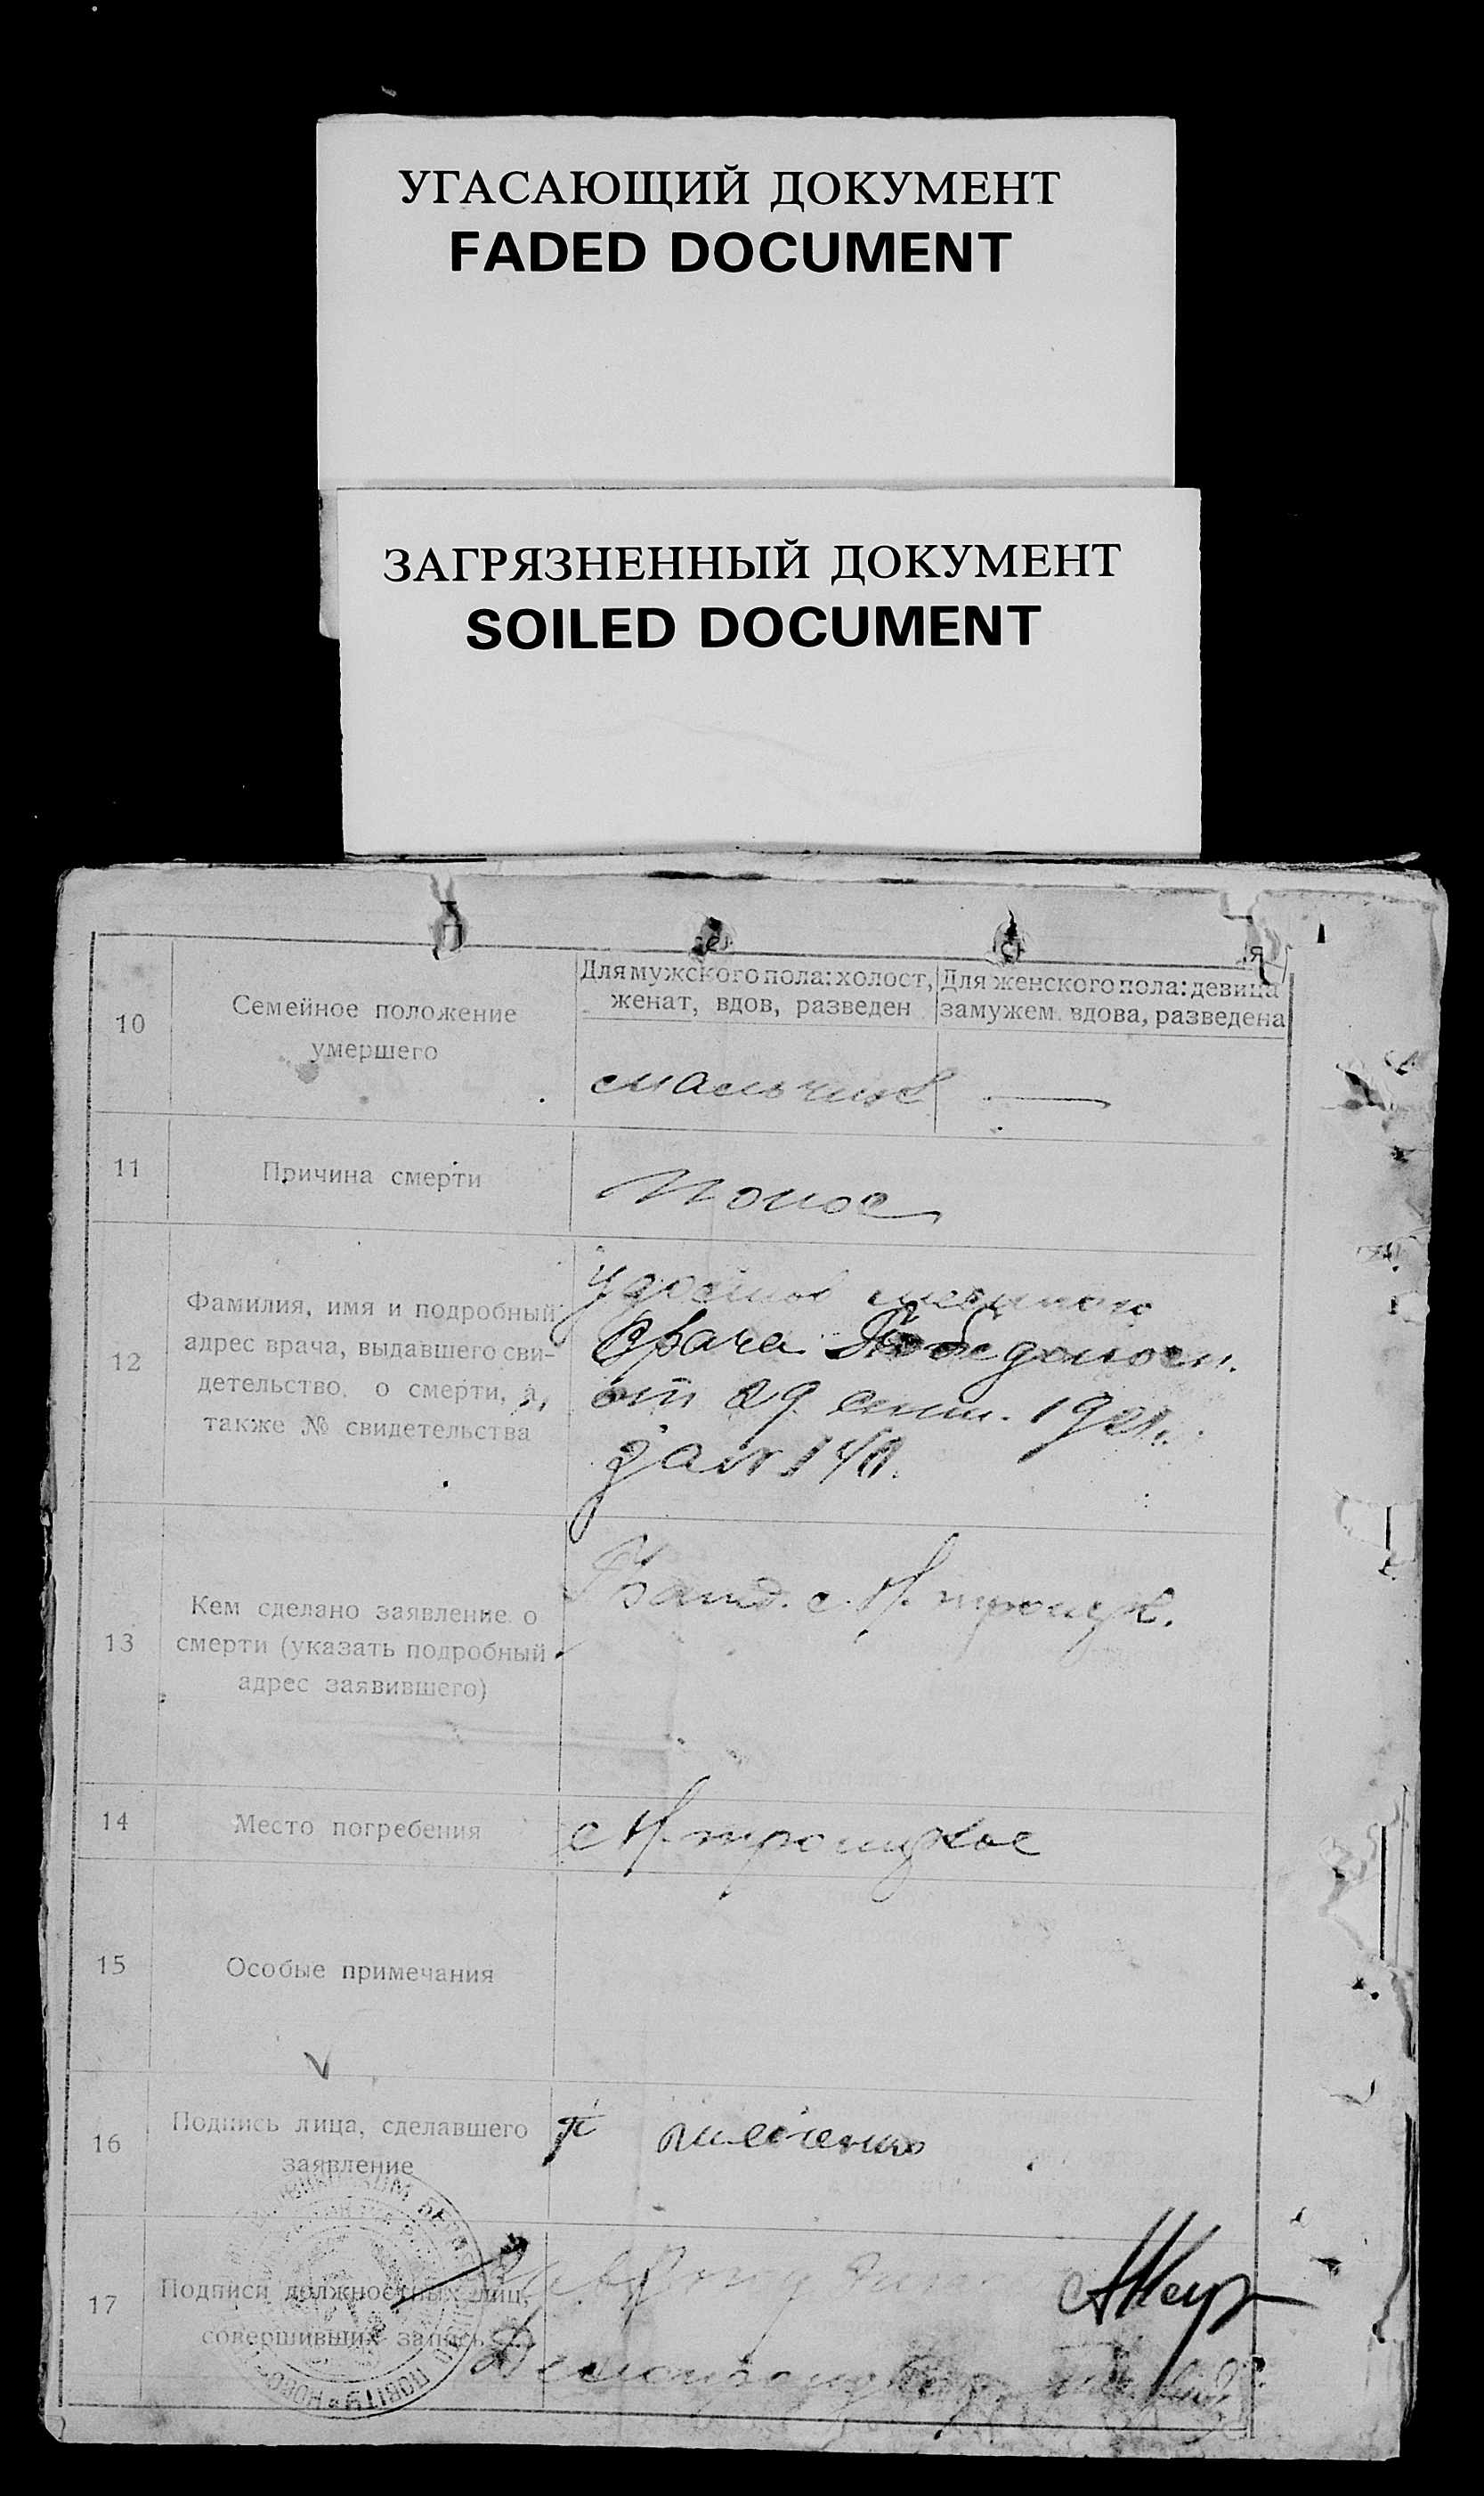 УГАСАЮЩИЙ ДОКУМЕНТ
FADED DOCUMENT
ЗАГРЯЗНЕННЫЙ ДОКУМЕНТ
SOILED DOCUMENT
10
Семейное положение
умершего
Для мужского пола: холост,
женат, вдов, разведен
Для женского пола: девица
замужем, вдова, разведена
мальчик
11
Причина смерти
Понос
12
Фамилия, имя и подробный
адрес врача, выдавшего сви-
детельство о смерти, а
также № свидетельства
врача Победонос.
от 29 1921.
за №
13
Кем сделано заявление о
смерти (указать подробный
адрес заявившего)
с. Н. троицк.
14
Место погребения
с Н. троицкое
15
Особые примечания
16
Подпись лица, сделавшего
заявление
17
Подписи должностных лиц,
совершивших запись